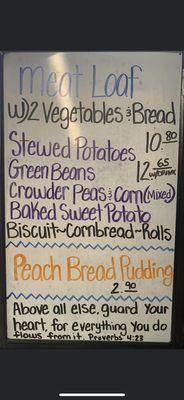 Meat Loaf
W/2 Vegetables & Bread
Stewed Potatoes 10.80
Green Beans 12.65 w/Drink
Crowder Peas & Corn (Mixed)
Baked Sweet Potato
Biscuit~Cornbread~Rolls
Peach Bread Pudding
2.90
Above all else, guard your
heart, for everything you do
flows from it. Proverbs 4:23